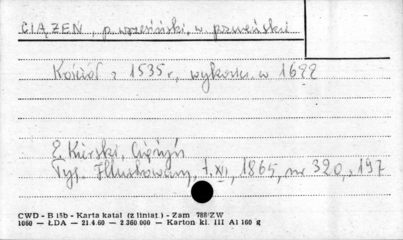 CIĄŻEŃ, p. wrzesiński, w. poznańskie
Kościół z 1535 r, wykończ. w 1622
E Kierski, Ciążyń
Tyg. Illustrowany, t. XI, 1865, nr 320, s 197
CWD - B 15b - Karta katal (z liniat) - Zam 788/ZW
1060 — ŁDA — 21.4.60 — 2.360.000 — Karton kl. III A1 160 g